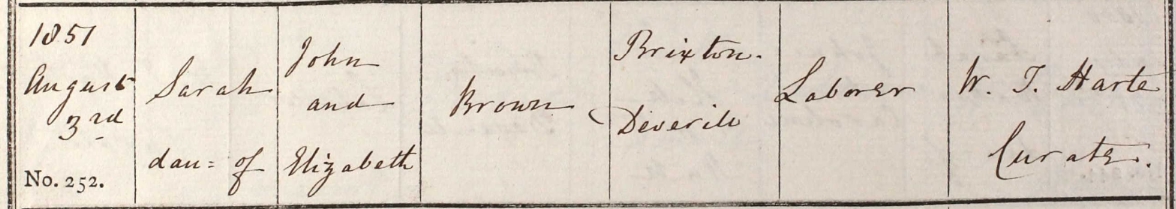 1851
August
3rd
No. 252.
Sarah
dau= of
John
and
Elizabeth
Brown
Brixton.
Deverill
Laborer
W. T. Harte
Curate.